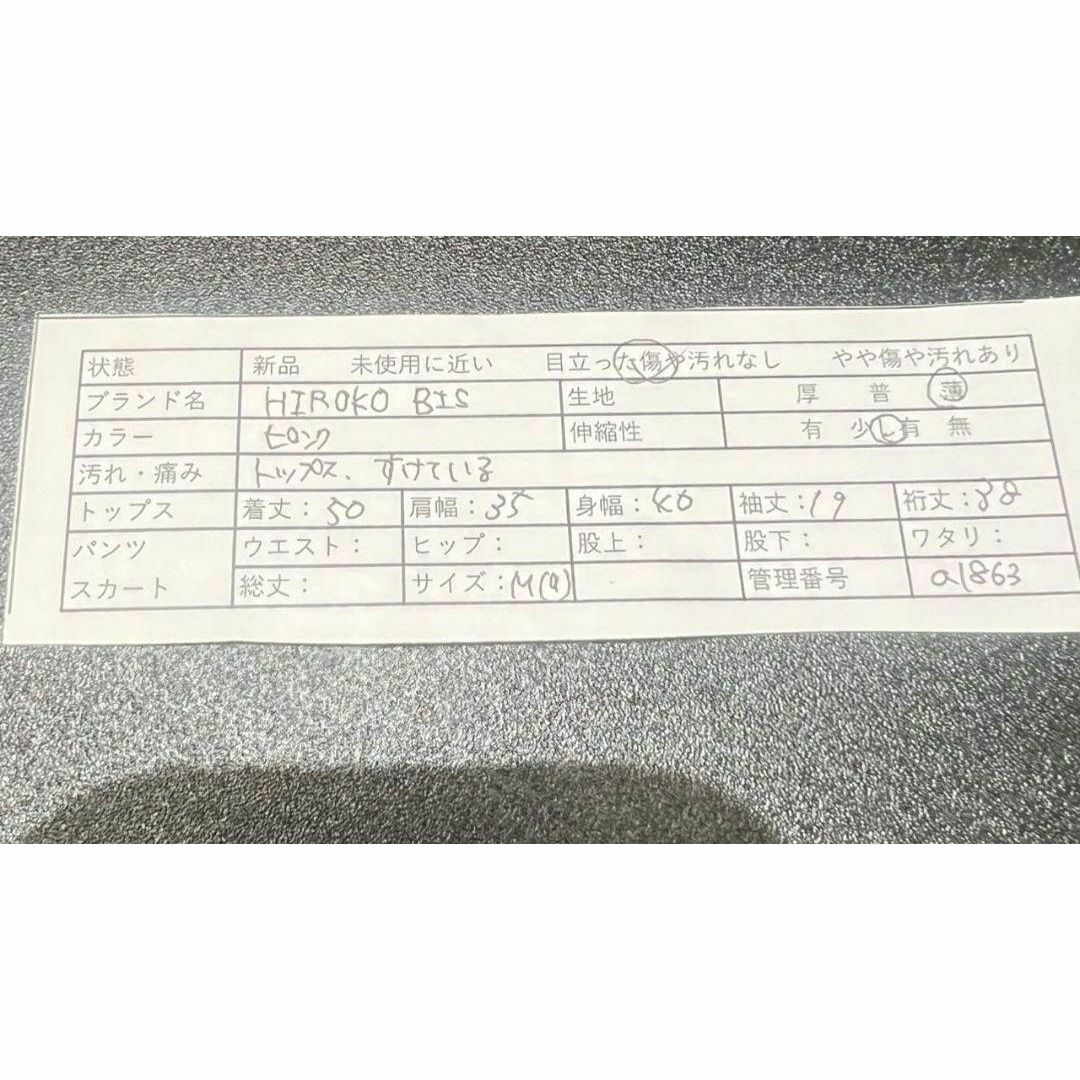 状態 新品 未使用に近い 目立った傷や汚れなし やや傷や汚れあり
ブランド名 HIROKO BIS 生地 厚 普 薄
カラー ピンク 伸縮性 有 少し有 無
汚れ・痛み トップス、すけている
トップス 着丈:50 肩幅:35 身幅:40 袖丈:19 裄丈:38
パンツ ウエスト: ヒップ: 股上: 股下: ワタリ:
スカート 総丈: サイズ:M(9) 管理番号 a1863